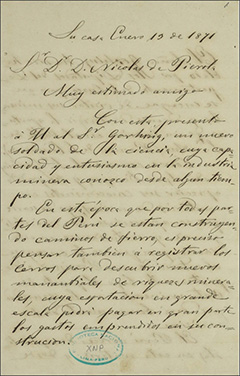 Su casa Enero 19 de 1871
Sr. D. D. Nicolas de Pierola
Muy estimado amigo
Con esta presento
á VM al Sr. un nuevo
soldado de la ciencia, cuya capa
cidad y entusiasmo en la industria
minera conozco desde algun tiem
po.
En esta época que por todas par
tes del Perú se estan construyen
do caminos de fierro, es preciso
pensar tambien á registrar los
Cerros para descubrir nuevos
manantiales de riquezas minera
les, cuya esportacion en grande
escala podrá pagar en gran parte
los gastos emprendidos en su con
strucion.
BIBLIOTECA NACIONAL
XNP
LIMA-PERU